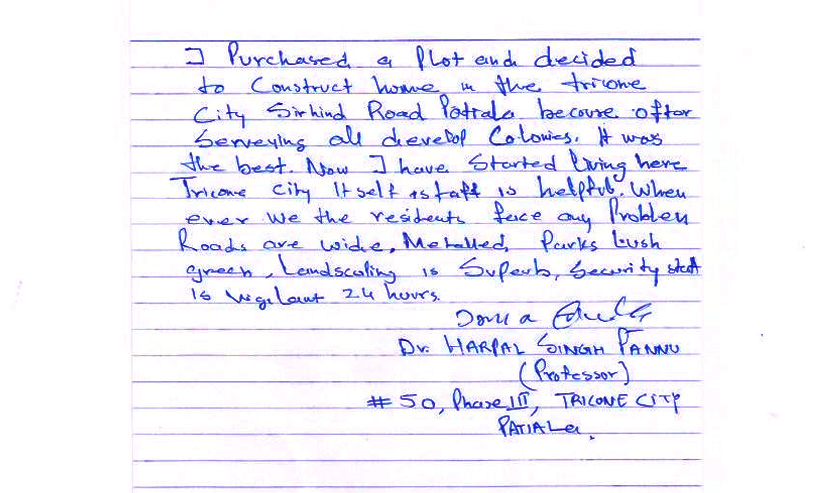 I Purchased a Plot and decided
to Construct home in the tricone
City Sirhind Road Patiala becouse after
Serveying all develop Colonies. It was
the best. Now I have Started living here
Tricone City Itself staff is helpful. When
ever we the residents face any Problem
Roads are wide, Metalled, Parks lush
green, Landscaling is Superb, Security staff
is vigilant 24 hours.
Dr. HARPAL SINGH PANNU
(Professor)
# 50, Phase III, TRICONE CITY
PATIALa.